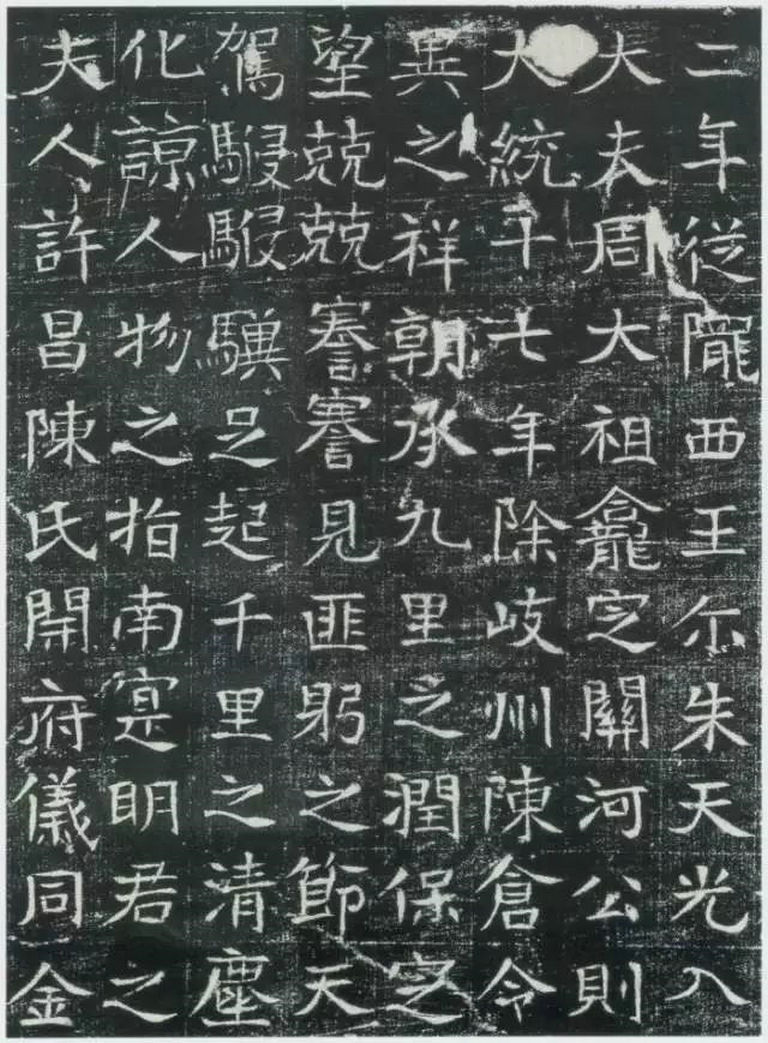 二年従隴西王尓朱天光入
大夫周大祖龕定關河公則
大統十七年除岐州陳倉令
異之祥朝承九里之潤保定
望兢兢謇謇見匪躬之節天
駕駸駸驥足起千里之清塵
化諒人物之指南寔明君之
夫人許昌陳氏開府儀同金